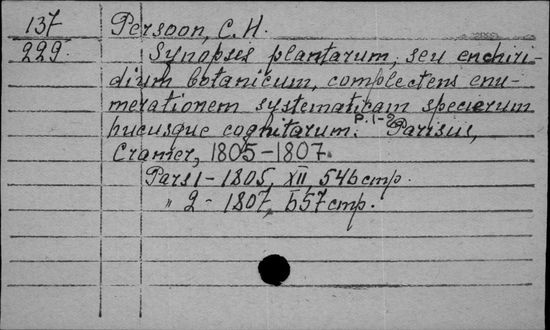 137 Persoon, C. H.
229. Synopsis plantarum, seu enchiri-
dium botanicum, complectens enu-
merationem systematicam specierum
hucusque cognitarum. P. 1-2. Parisiis,
Cramer, 1805-1807.
Pars 1 - 1805, XII, 546 cmp.
" 2 - 1807, 657 cmp.